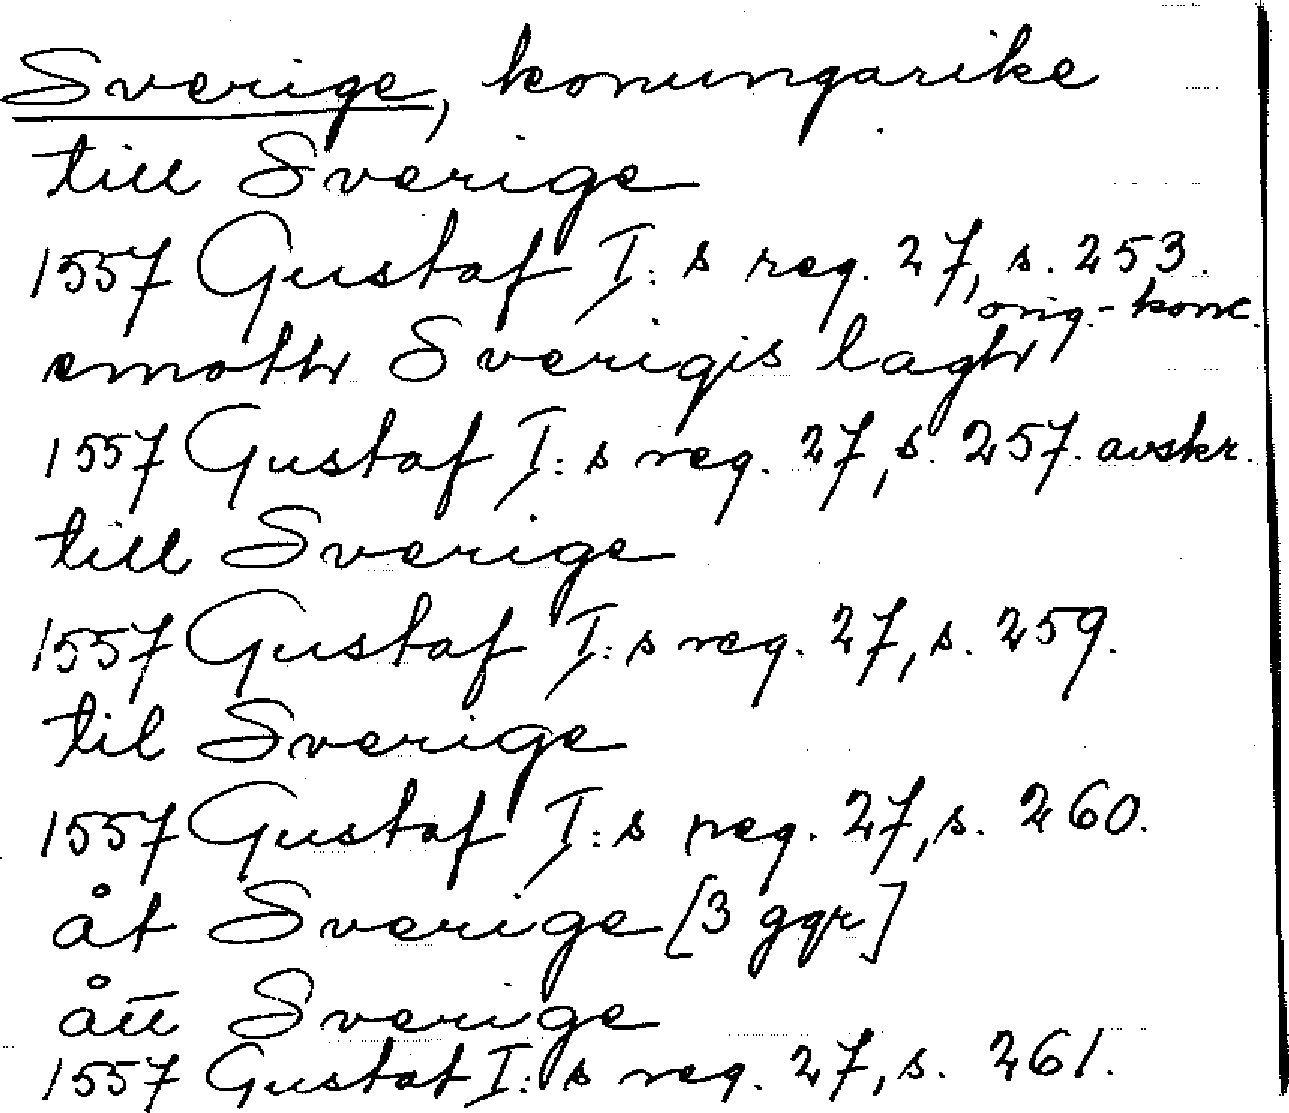 Sverige, konungarike
till Sverige
1557 Gustaf I:s reg. 27, s. 253.
orig.-konc.
emoth Sverigis lagh
1557 Gustaf I:s reg. 27, s. 257. avskr.
till Sverige
1557 Gustaf I:s reg. 27, s. 259.
til Sverige
1557 Gustaf I:s reg. 27, s. 260.
åt Sverige [3 ggr]
Sverige
1557 Gustaf I:s reg. 27, s. 261.